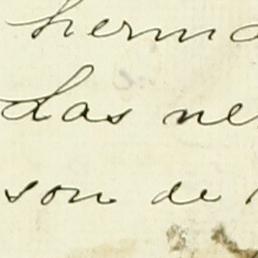 herma
Las ne
son de